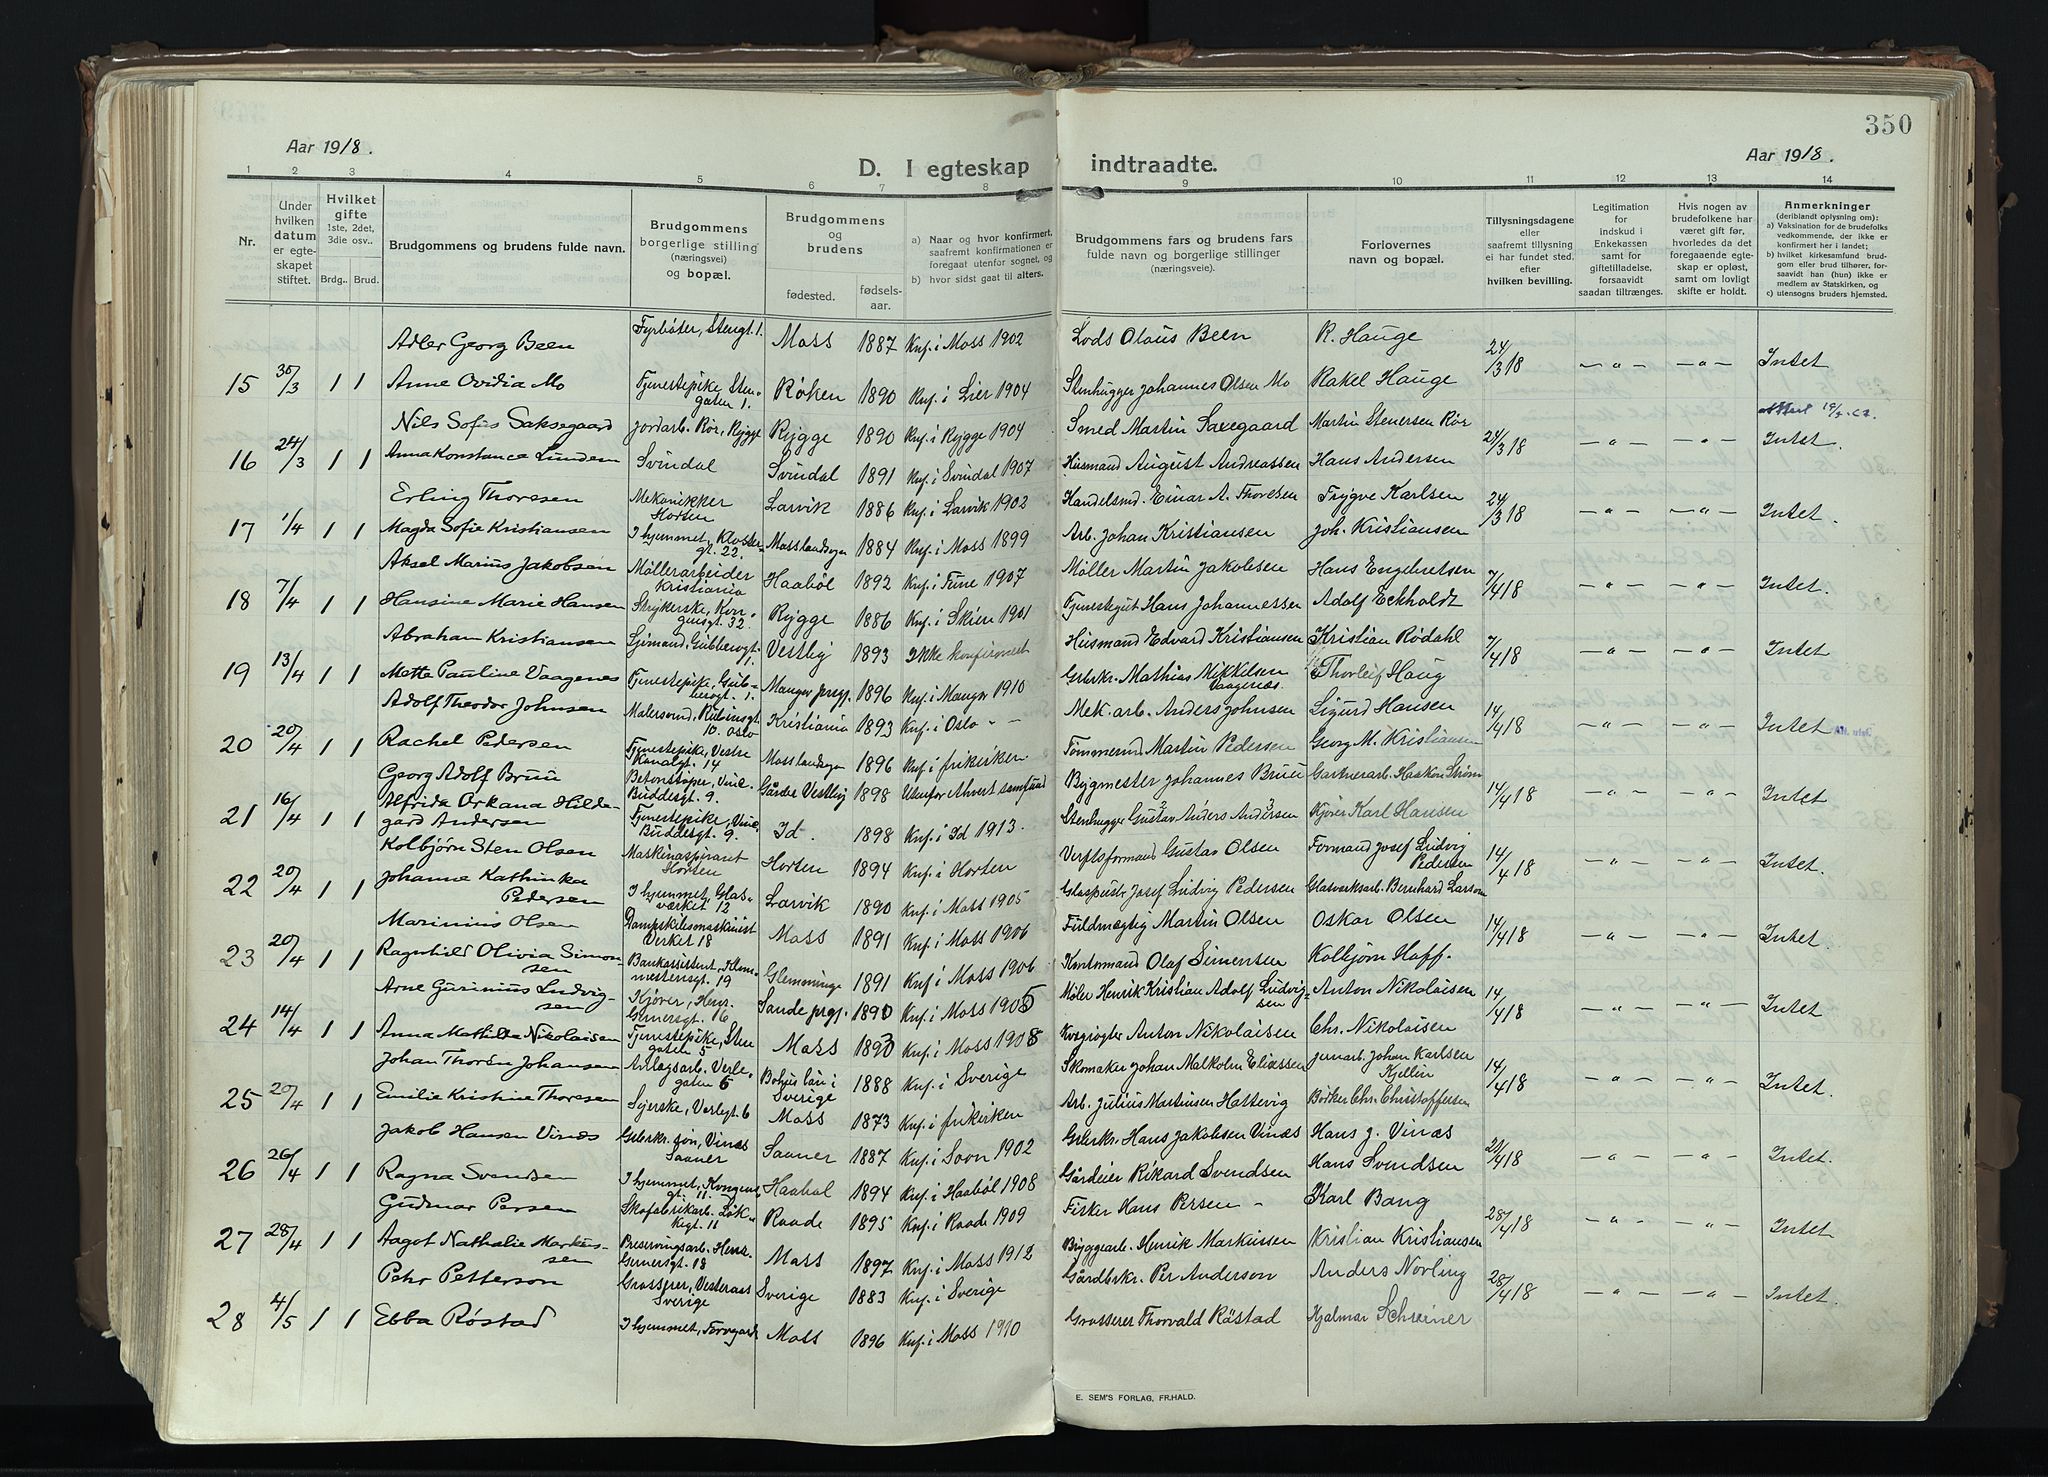 350
Aar 1918. Aar 1918.
D. I egteskap indtraadte.
1 2 3 4 5 6 7 8 9 10 11 12 13 14
Nr.
Under hvilken datum er egteskapet stiftet.
Hvilket gifte 1ste, 2det, 3die osv..
Brdg.. Brud.
Brudgommens og brudens fulde navn.
Brudgommens borgerlige stilling (næringsvei) og bopæl.
Brudgommens og brudens
fødested. fødselsaar.
a) Naar og hvor konfirmert, saafremt konfirmationen er foregaat utenfor sognet, og
b) hvor sidst gaat til alters.
Brudgommens fars og brudens fars fulde navn og borgerlige stillinger (næringsvei).
Forlovernes navn og bopæl.
Tillysningsdagene eller saafremt tillysning ei har fundet sted. efter hvilken bevilling.
Legitimation for indskud i Enkekassen samt for giftetilladelse, forsaavidt saadan tiltrænges.
Hvis nogen av brudefolkene har været gift før, hvorledes da det foregaaende egteskap er opløst, samt om lovligt skifte er holdt.
Anmerkninger (deriblandt oplysning om):
a) Vaksination for de brudefolks vedkommende, der ikke er konfirmert her i landet;
b) hvilket kirkesamfund brudgom eller brud tilhører, forsaavidt han (hun) ikke er medlem av Statskirken, og
c) utensogns bruders hjemsted.
Adler Georg Been Fyrbøter, Stengt. 1. Moss 1887 Knf. i Moss 1902 Lods Olaus Been R. Hauge 24/3 18
15 30/3 1 1 Anne Ovidia Mo Tjenestepike, Stengaten 1. Røken 1890 Knf. i Lier 1904 Stenhugger Johannes Olsen Mo Rakel Hauge — " — — " — Intet
Nils Sofus Saksegaard Jordarb. Rør, Rygge Rygge 1890 Knf. i Rygge 1904 Smed Martin Saxegaard Martin Stenersen Rør 24/3 18
16 24/3 1 1 Anna Konstance Lunden Svindal Svindal 1891 Knf. i Svindal 1907 Husmand August Andreassen Hans Andersen — " — — " — Intet.
Erling Thoresen Mekanikker Horten Larvik 1886 Knf. i Larvik 1902 Handelsmd. Einar A. Thoresen Trygve Karlsen 24/3 18
17 1/4 1 1 Magda Sofie Kristiansen I hjemmet, Klostergt. 22. Moss landsogn 1884 Knf. i Moss 1899 Arb. Johan Kristiansen Joh. Kristiansen — " — — " — Intet.
Aksel Marius Jakobsen Møllerarbeider Kristiania Haabøl 1892 Knf. i Tune 1907 Møller Martin Jakobsen Hans Engebretsen 7/4 18
18 7/4 1 1 Hansine Marie Hansen Strykerske, Kongensgt. 32. Rygge 1886 Knf. i Skien 1901 Tjenestegut Hans Johannessen Adolf Eckholdt — " — — " — Intet.
Abraham Kristiansen Sjømand, Gubberogt. 1. Vestby 1893 Ikke konfirmert Husmand Edvard Kristiansen Kristian Rødahl 7/4 18
19 13/4 1 1 Mette Pauline Vaagenes Tjenestepike, Gubberogt. 1. Manger prgj. 1896 Knf. i Manger 1910 Gbrkr. Mathias Mikkelsen Vaagenes. Thorleif Haug — " — — " — Intet
Adolf Theodor Johnsen Malersvend, Rubinsgt. 10. Oslo Kristiania 1893 Knf. i Oslo — — Mek. arb. Anders Johnsen Sigurd Hansen 14/4 18
20 20/4 1 1 Rachel Pedersen Tjenestepike, Vestre Kanalgt. 14 Moss landsogn 1896 Knf. i frikirken Tømmermd Martin Pedersen Georg M. Kristiansen — " — — " — Intet
Georg Adolf Bruu Betonstøper, Vinc. Buddesgt. 9. Gårder Vestby 1898 Utenfor ethvert samfund Bygmester Johannes Bruu Gartnerarb. Haakon Strøm 14/4 18
21 16/4 1 1 Alfrida Orkana Hildegard Andersen Tjenestepike, Vinc. Buddesgt. 9. Id. 1898 Knf. i Id 1913. Stenhugger Gustav Anders Andersen Kjører Karl Hansen — " — — " — Intet
Kolbjørn Sten Olsen Maskinaspirant Horten Horten 1894 Knf. i Horten Verftsformand Gustav Olsen Formand Josef Ludvig Pedersen 14/4 18
22 20/4 1 1 Johanne Kathinka Pedersen I hjemmet, Glasverket 12 Larvik 1890 Knf. i Moss 1905 Glaspustr Josef Ludvig Pedersen Glasverksarb. Bernhard Larsen — " — — " — Intet.
Marinius Olsen Dampskibsmaskinist Verket 18 Moss 1891 Knf. i Moss 1906 Fuldmægtig Martin Olsen Oskar Olsen 14/4 18
23 20/4 1 1 Ragnhild Olivia Simonsen Bankassistent, Klommestensgt. 19 Glemminge 1891 Knf i Moss 1906 Kontormand Olaf Simensen Kolbjørn Hoff. — " — — " — Intet.
Arne Gurinius Ludvigsen Kjører, Henr. Gernersgt. 16 Sande prgj. 1890 Knf. i Moss 1905 Maler Henrik Kristian Adolf Ludvigsen Anton Nikolaisen 14/4 18
24 14/4 1 1 Anna Mathilde Nikolaisen Tjenestepike, Stengaten 5 Moss 1893 Knf. i Moss 1908 Kvægrøgter Anton Nikolaisen Chr. Nikolaisen — " — — " — Intet
Johan Thorén Johansen Anlægsarb. Verlegaten 6 Bohus län i Sverige 1888 Knf. i Sverige Skomaker Johan Malkolm Eliassen Jernarb. Johan Karlsen Kjellin 14/4 18
25 20/4 1 1 Emilie Kristine Thoresen Syerske, Verlegt. 6 Moss 1873 Knf. i frikirken Arb. Julius Martinsen Hattevig Bødker Chr. Christoffersen — " — — " — Intet.
Jakob Hansen Vinæs Gbrkr. søn, Vinæs Saaner Saaner 1887 Knf. i Sovn 1902 Gbrkr. Hans Jakobsen Vinæs Hans J. Vinæs 21/4 18
26 26/4 1 1 Ragna Svendsen I hjemmet, Kongensgt. 11. Haabøl 1894 Knf. i Haabøl 1908 Gårdeier Rikard Svendsen Hans Svendsen — " — — " — Intet.
Gudmar Persen Skofabrikarb. Løkkegt. 11 Raade 1895 Knf. i Raade 1909 Fisker Hans Persen — Karl Bang 28/4 18
27 28/4 1 1 Aagot Nathalie Markussen Preservingsarb. Henr. Gernersgt. 18 Moss 1897 Knf. i Moss 1912 Bryggearb. Henrik Markussen Kristian Kristiansen — " — — " — Intet
Pehr Petterson Grosserer, Vesteraas Sverige Sverige 1883 Knf. i Sverige Gårdbrkr. Per Anderson Anders Novling 28/4 18
28 4/5 1 1 Ebba Røstad I hjemmet, Moss 1896 Knf. i Moss 1910 Grosserer Thorvald Røstad Hjalmar Schreiner — " — — " — Intet.
E. SEM'S FORLAG, FR.HALD.